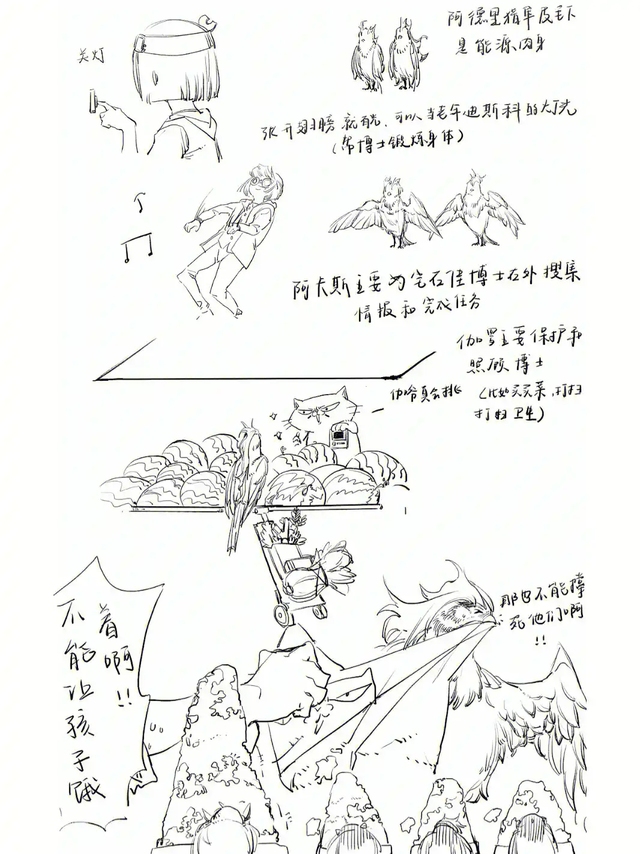 关灯
阿德里猎隼及毛下
是能源肉身
张开翅膀就亮,可以当老年迪斯科的灯光
(帮博士锻炼身体)
阿卡斯主要为宝石怪博士在外搜集
情报和完成任务
伽罗主要保护和
照顾博士
(比如买菜,打扫
打扫卫生)
真会挑
那也不能撑
死他们啊
!!
不能让孩子饿
着啊!!